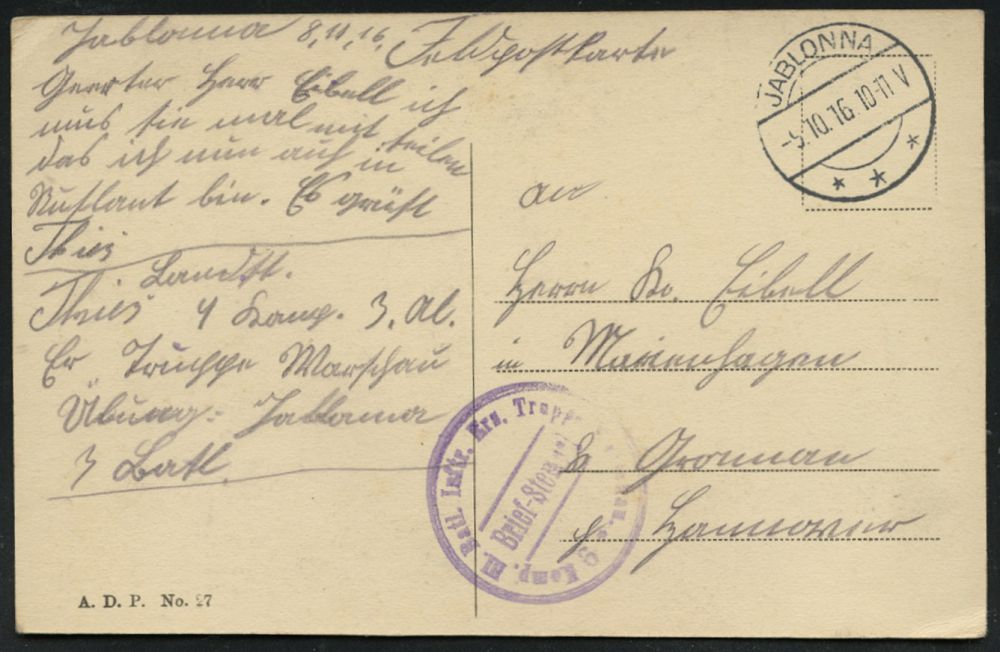 Jablonna 8.11.16. Feldpostkarte
Geerter Herr Eibell ich
mus sie mal mit teilen
das ich nun auch in
Rußlant bin. Es grüßt
Thies
Landst.
Thies 4 Komp. 3. Al.
Er Truppe Warschau
Übung. Jablonna
3 Batl.
A. D. P. No. 27
JABLONNA
-5.10.16.10-11 V
an
Herrn Eibell
in Marienhagen
b Gronau
Hannover
9 Komp. III. Batl. Inftr. Ers. Truppe
Brief-Stempel